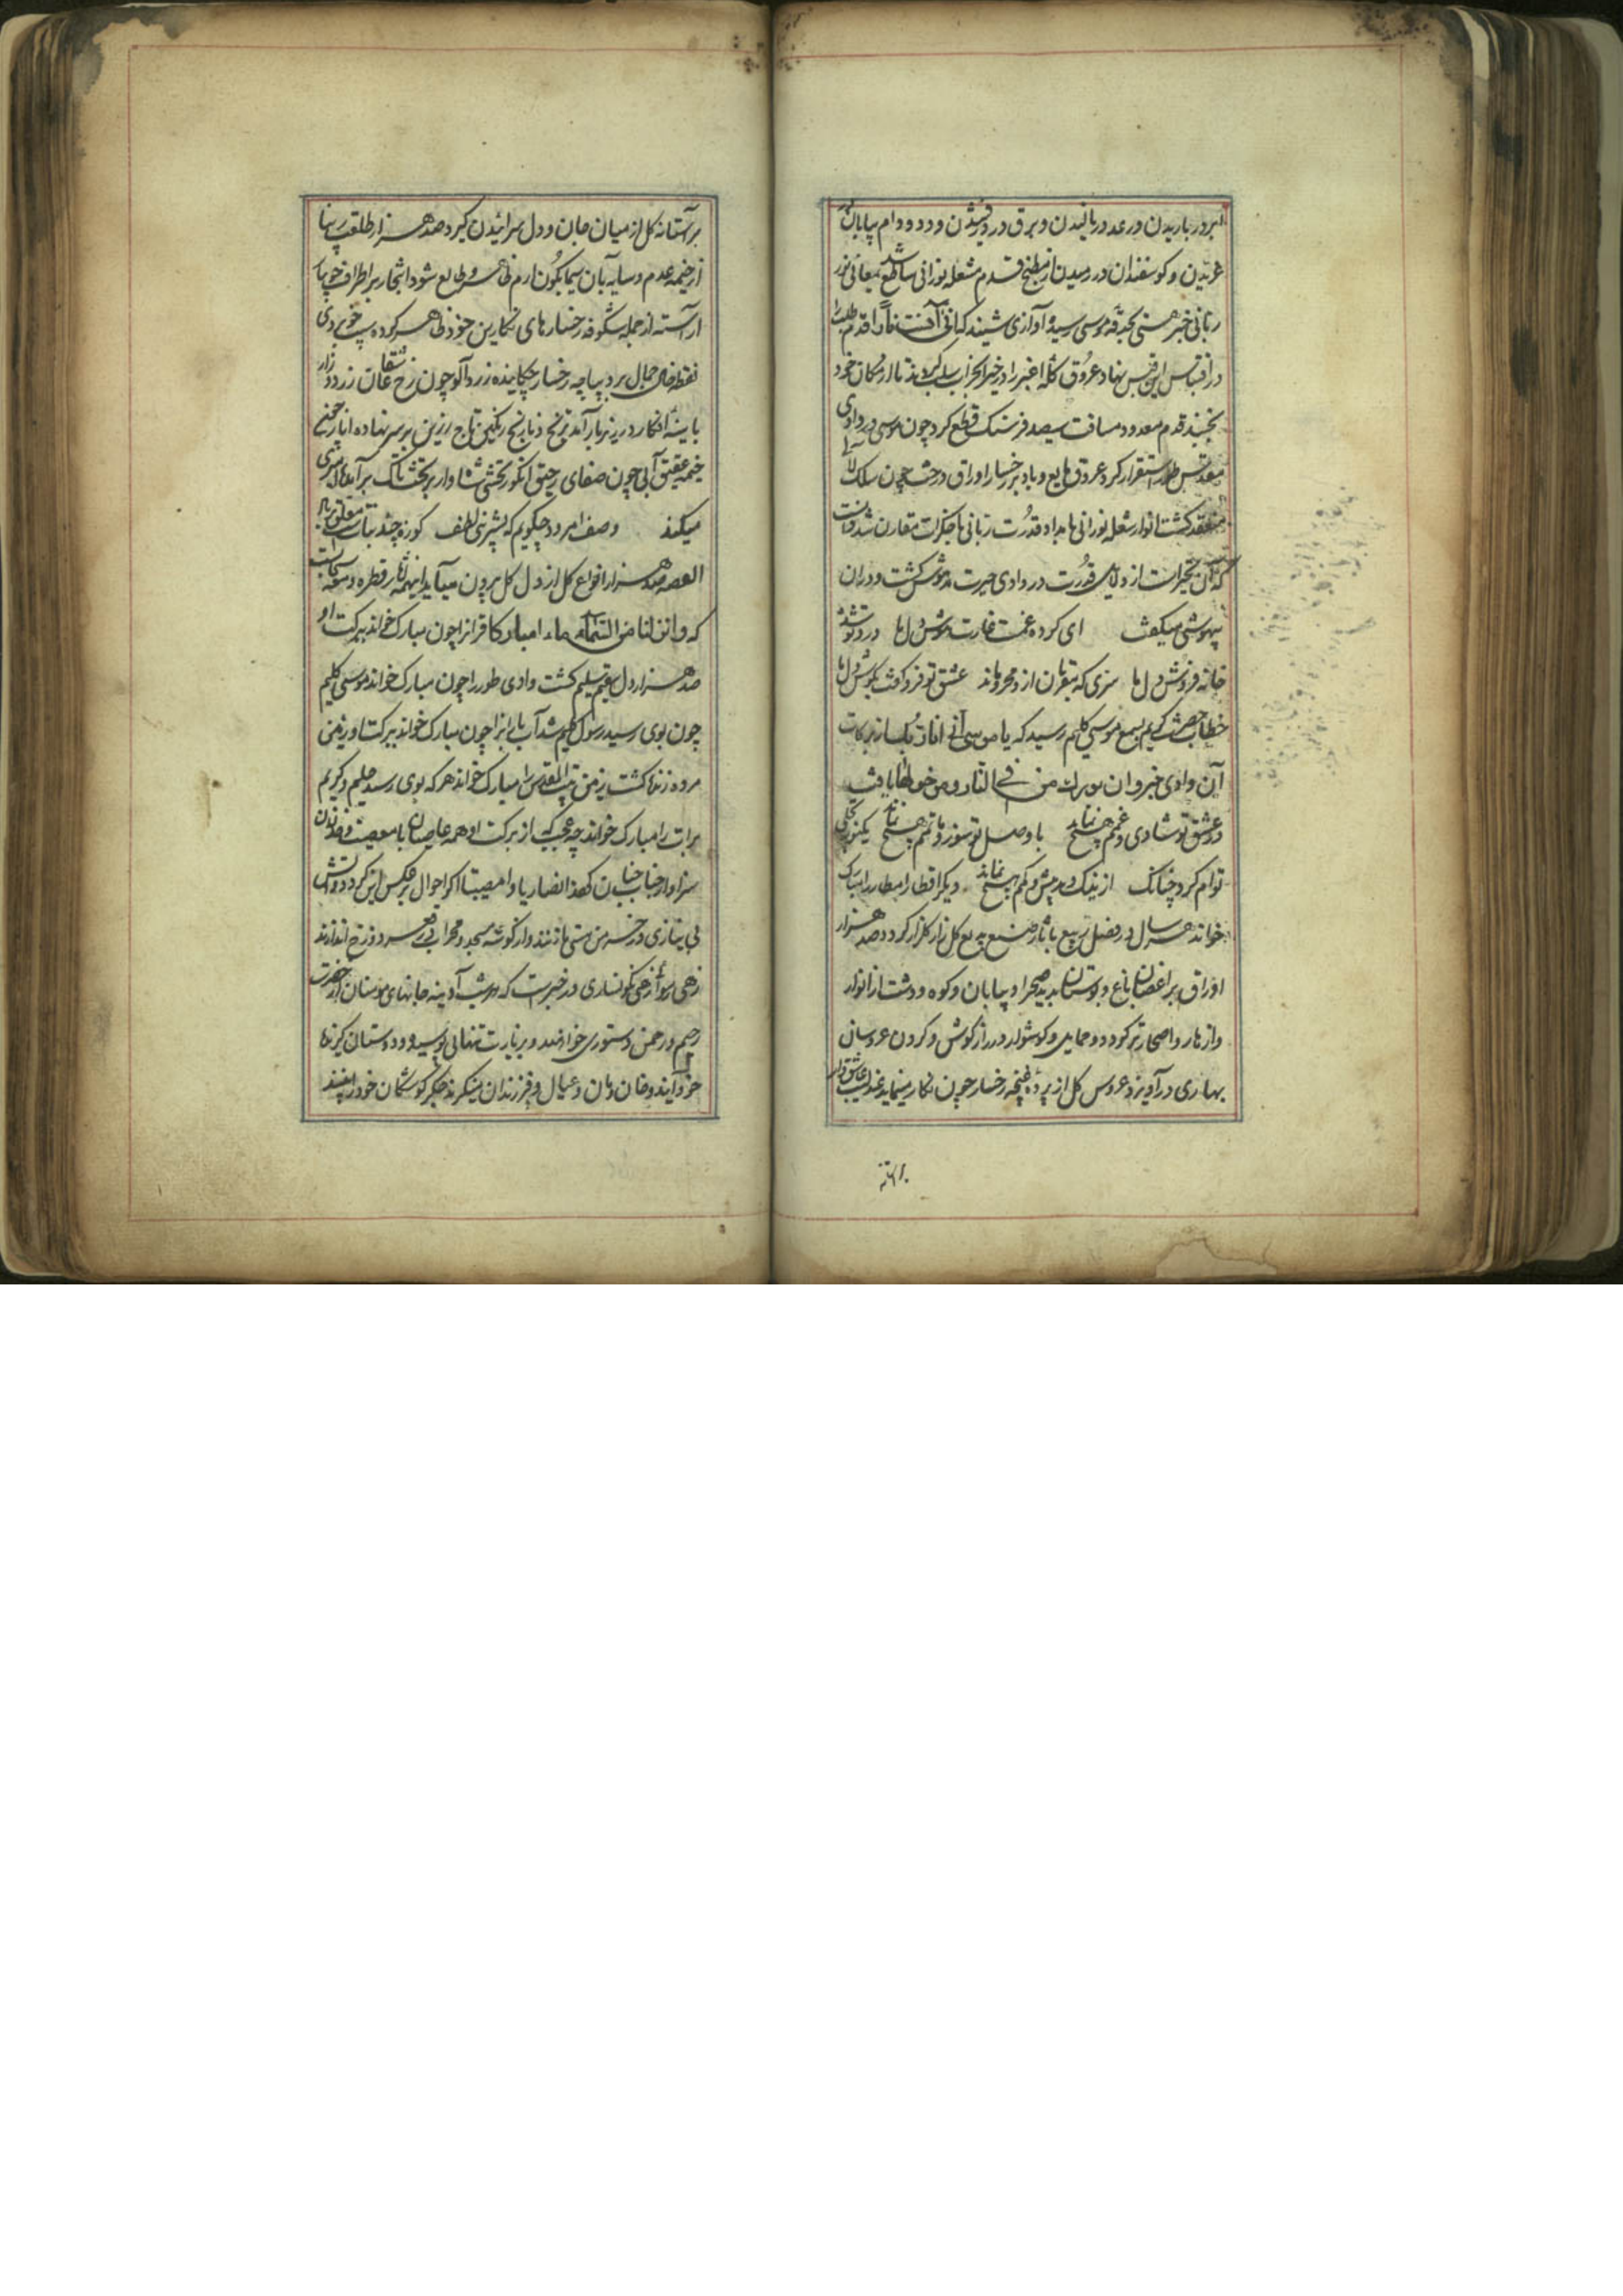 ابر در باریدن و رعد در نالیدن و برق در درخشیدن و دد و دام بیابان در
غریدن و کوسفندان در رمیدن از مطبخ قدم مشعله نورانی ساطع شد معانی نور
ربانی خبر هستی بحدقه موسی رسید و آوازی شنید که انی آنست نارا قدم طلب را
در اقتباس این قبس نهاد عروق کله اغبر را در خیر
بچند قدم معدود مسافت سیصد فرسنک قطع کرد چون موسی در وادی
مقدس طور استقرار کرد عروق و باد بر رخسار اوراق درخت چون سلک لآلی
منعقد کشت انوار شعله نورانی با مداد قدرت ربانی با مقارن شد
که آن تحیرات از قدرت در وادی حیرت مدهوش کشت و در آن
بیهوشی میکفت ای کرده غمت غارت هوش دل ما درد تو شده
خانه فروش دل ما سری که مقربان از و محرومند عشق تو فرو کفت بکوش دل ما
خطاب حضرت کریم بسمع موسی کلیم رسید که یا موسی انی انا ربک از برکات
آن وادی خبر و ان بورک من فی النار و من حولها یافت
در عشق تو شادی و غمم هیچ نماند با وصل تو سوز و ماتمم هیچ نماند یکنور تجلی
توام کرد چنانک از نیک و بد و بیش و کمم هیچ نماند دیکر اقطار امطار را مبارک
خواند هر سال در فصل ربیع بآثار صنع بدیع کل زار کلزار کردد صد هزار
اوراق بر اغصان باغ و بوستان پدید صحرا و بیابان و کوه و دشت از انوار
و ازهار و اصحار تر کردد و حمایل و کوشوار در از کوش و کردن عروسان
بهاری در آویزد عروس کل از پرده غنچه رخسار چون نکار بنماید عندلیب عاشق وار
بر آستانه کل از میان جان و دل سرائیدن کیرد صد هزار طلعت زیبا
از خیمه عدم و سایه بان سیمابکون ارم ظاهر و طالع شود اشجار بر اطراف جویبار
آراسته از جمله شکوفه رخسارهای نکارین خود ظاهر کرده سیب خوبروی
نقطه خال جمال بر دیباچه رخسار چکانیده زردآلو چون رخ عاشقان زرد و زار
با سینه افکار در زیر بار آمد ترنج و نارنج رنکین تاج زرین بر سر نهاده انار چمنی
خیمه عقیق آبی چون صفای رحیق انکور تختی شاه وار بر تخت تاک بر آمده
میکند وصف امرود چکویم که بشیرینی و لطف کوزه چند نباتست معلق بر بار
القصه صد هزار انواع کل از دل کل برون میآید اینهمه آثار قطره و رشحه سحاب
که و انزلنا من السماء ماء مبارکا قرانرا چون مبارک خواند ببرکت او
صد هزار دل سقیم سلیم کشت وادی طور را چون مبارک خواند موسی کلیم
چون بوی رسید رسول کلیم شد آب بارانرا چون مبارک خواند ببرکت او زمین
مرده زنده کشت زمین بیت المقدس را مبارک خواند هر که بوی رسد حلیم و کریم
برات را مبارک خواند چه عجب که از برکت او همه عاصیان با معصیت
سزاوار جناب جنان کهف انصار یا وامصیبتا اکر احوال برعکس این کردد و آتش
بی نیازی در خرمن هستی ما زنند و از کوشه مسجد و محراب در قعر دوزخ اندازند
زهی رسوائی زهی نکونساری در خبرست که در شب آدینه جانهای مؤمنان از حضرت
رحیم رحمن دستوری خواهند و بزیارت تنهای پوسیده و دوستان
خود آیند و خان و مان و عیال و فرزندان بنکرند جکر کوشکان خود را بینند